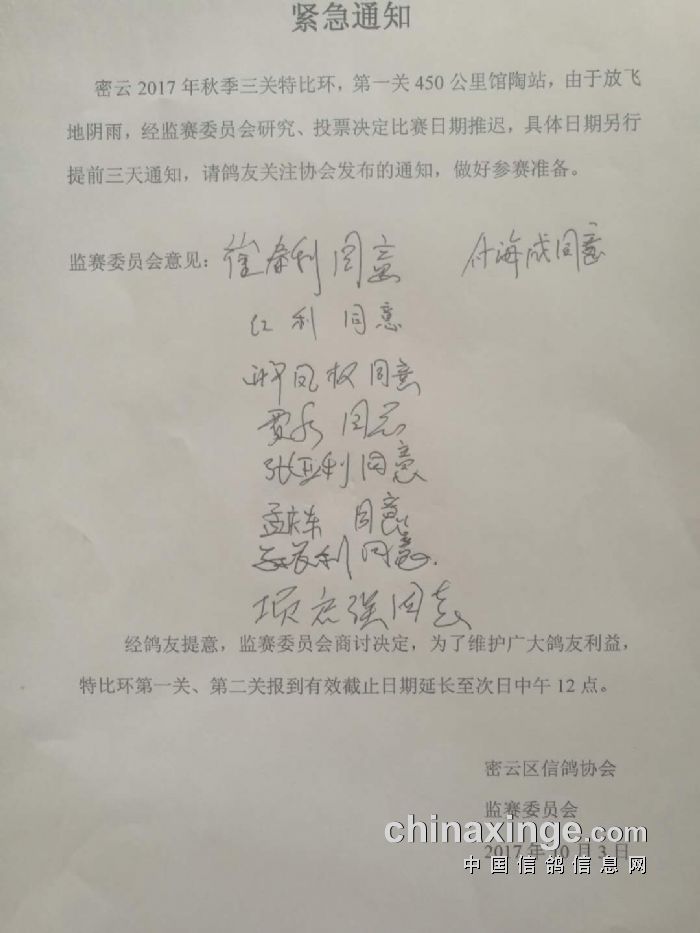 紧急通知
密云2017年秋季三关特比环，第一关450公里馆陶站，由于放飞
地阴雨，经监赛委员会研究、投票决定比赛日期推迟，具体日期另行
提前三天通知，请鸽友关注协会发布的通知，做好参赛准备。
监赛委员会意见：崔春利 同意 付海成 同意
红利 同意
凤权 同意
贾 同意
张亚利 同意
孟庆东 同意
利 同意
项宏强 同意
经鸽友提意，监赛委员会商讨决定，为了维护广大鸽友利益，
特比环第一关、第二关报到有效截止日期延长至次日中午12点。
密云区信鸽协会
监赛委员会
2017年10月3日
chinaxinge.com
中国信鸽信息网